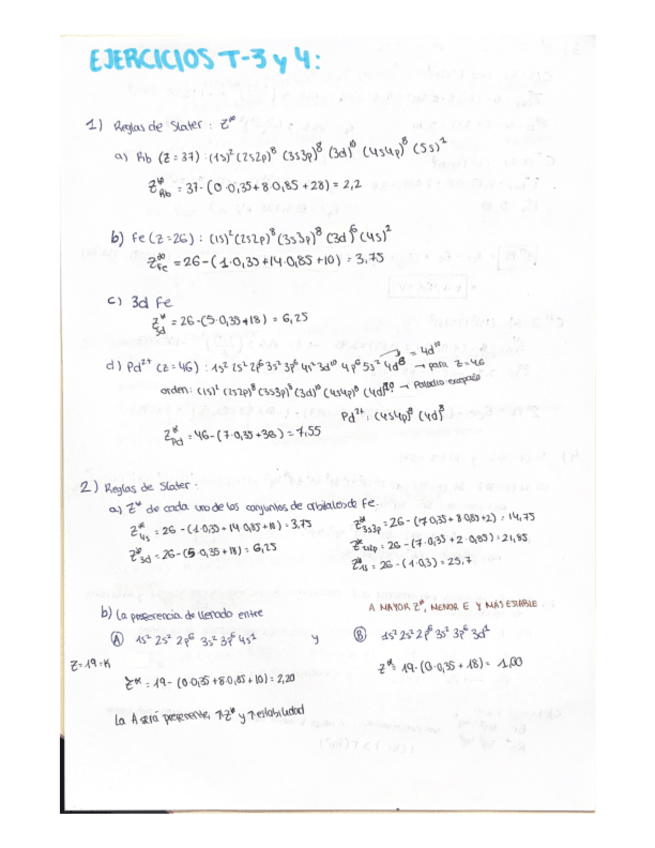 EJERCICIOS T-3 y 4:
1) Reglas de Slater: Z*
a) Rb (Z=37): (1s)² (2s2p)⁸ (3s3p)⁸ (3d)¹⁰ (4s4p)⁸ (5s)¹
Z*Rb = 37-(0·0,35+8·0,85+28) = 2,2
b) Fe (Z=26): (1s)² (2s2p)⁸ (3s3p)⁸ (3d)⁶ (4s)²
Z*Fe = 26-(1·0,35+14·0,85+10) = 3,75
c) 3d Fe
Z*3d = 26-(5·0,35+18) = 6,25
d) Pd²⁺ (Z=46): 1s² 2s² 2p⁶ 3s² 3p⁶ 4s² 3d¹⁰ 4p⁶ 5s² 4d⁸ → para Z=46
= 4d¹⁰
orden: (1s)² (2s2p)⁸ (3s3p)⁸ (3d)¹⁰ (4s4p)⁸ (4d)¹⁰ → Paladio
Pd²⁺: (4s4p)⁸ (4d)⁸
Z*Pd = 46-(7·0,35+36) = 7,55
2) Reglas de Slater:
a) Z* de cada uno de los conjuntos de orbitales de Fe.
Z*4s = 26-(1·0,35+14·0,85+10) = 3,75
Z*3s3p = 26-(7·0,35+8·0,85+2) = 14,75
Z*3d = 26-(5·0,35+18) = 6,25
Z*2s2p = 26-(7·0,35+2·0,85) = 21,85
Z*1s = 26-(1·0,3) = 25,7
b) La preferencia de llenado entre
A MAYOR Z*, MENOR E Y MAS ESTABLE
Ⓐ 1s² 2s² 2p⁶ 3s² 3p⁶ 4s¹ y Ⓑ 1s² 2s² 2p⁶ 3s² 3p⁶ 3d¹
Z=19=K
Z* = 19-(0·0,35+8·0,85+10) = 2,20
Z* = 19-(0·0,35+18) = 1,00
La A será preferente, ↑Z* y ↑estabilidad